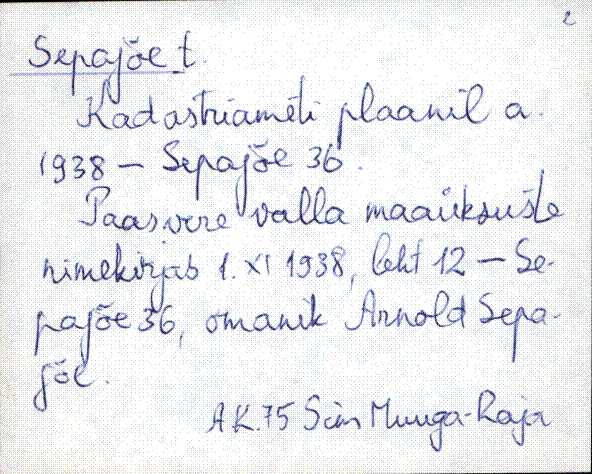 2
Sepajõe t.
Kadastriameti plaanil a.
1938 – Sepajõe 36.
Paasvere valla maaüksuste
nimekirjas 1. XI 1938, leht 12 – Se-
pajõe 36, omanik Arnold Sepa-
jõe.
AK.75 Sim Muuga-Raja